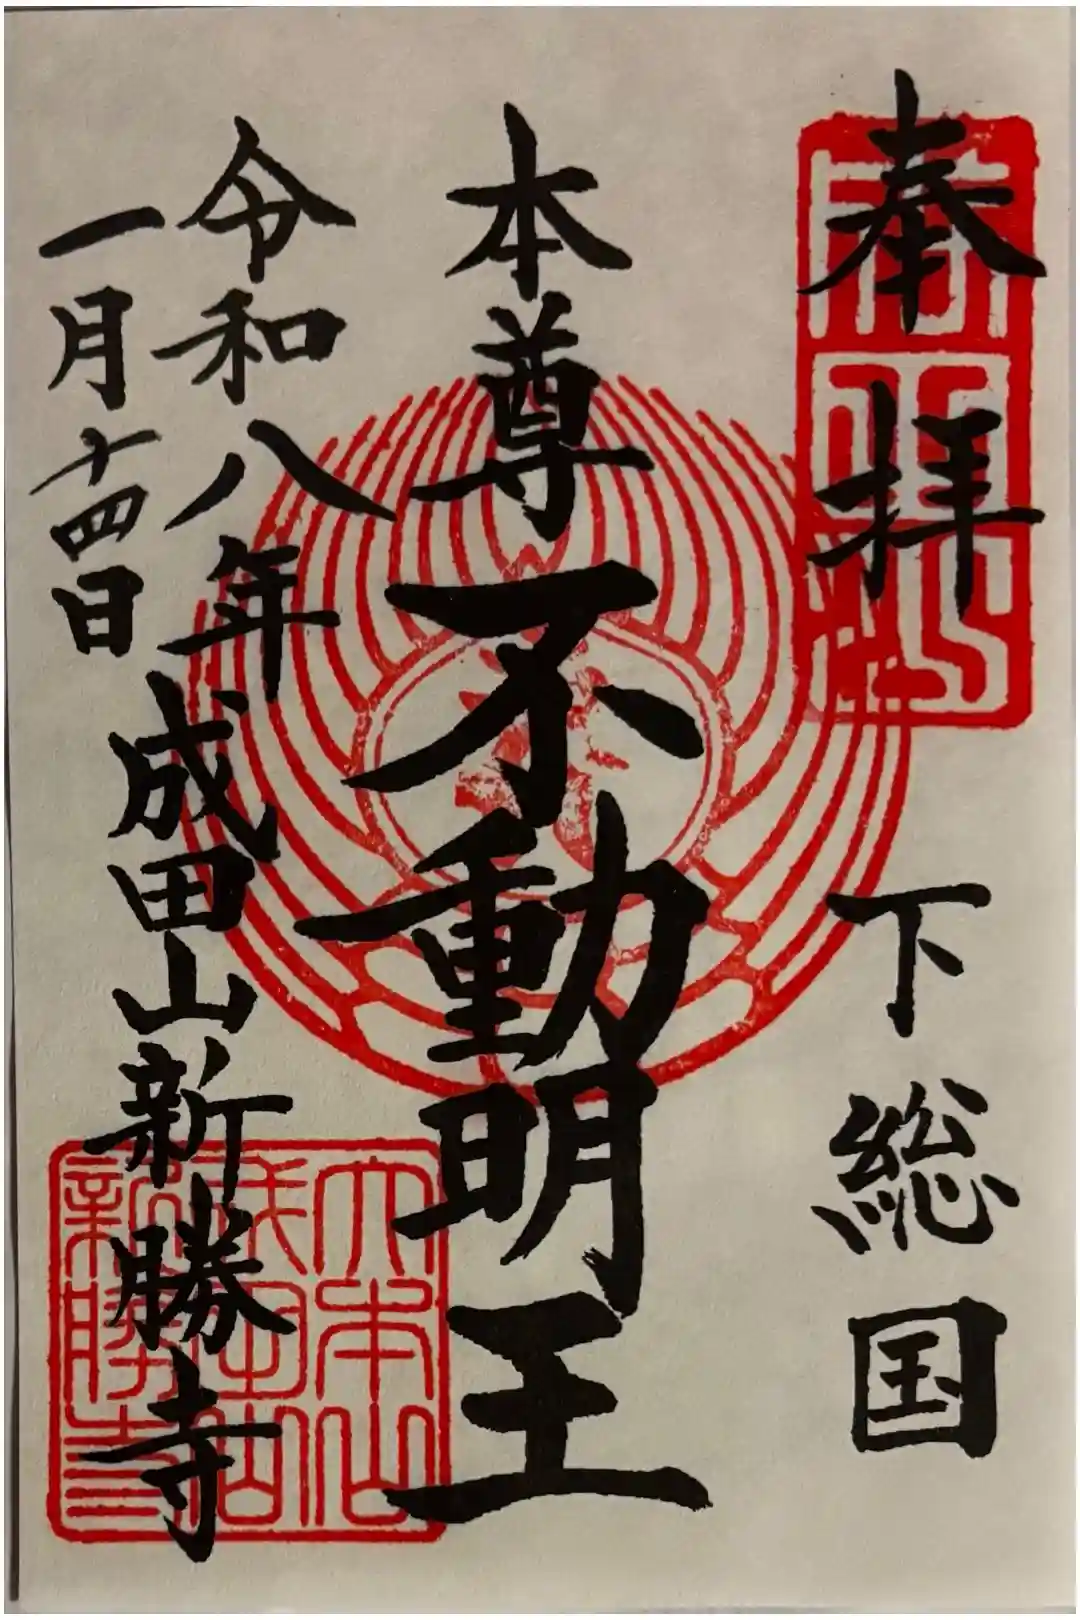 奉拝
下総国
本尊不動明王
令和八年
一月十四日
成田山新勝寺
大本山
成田山
新勝寺